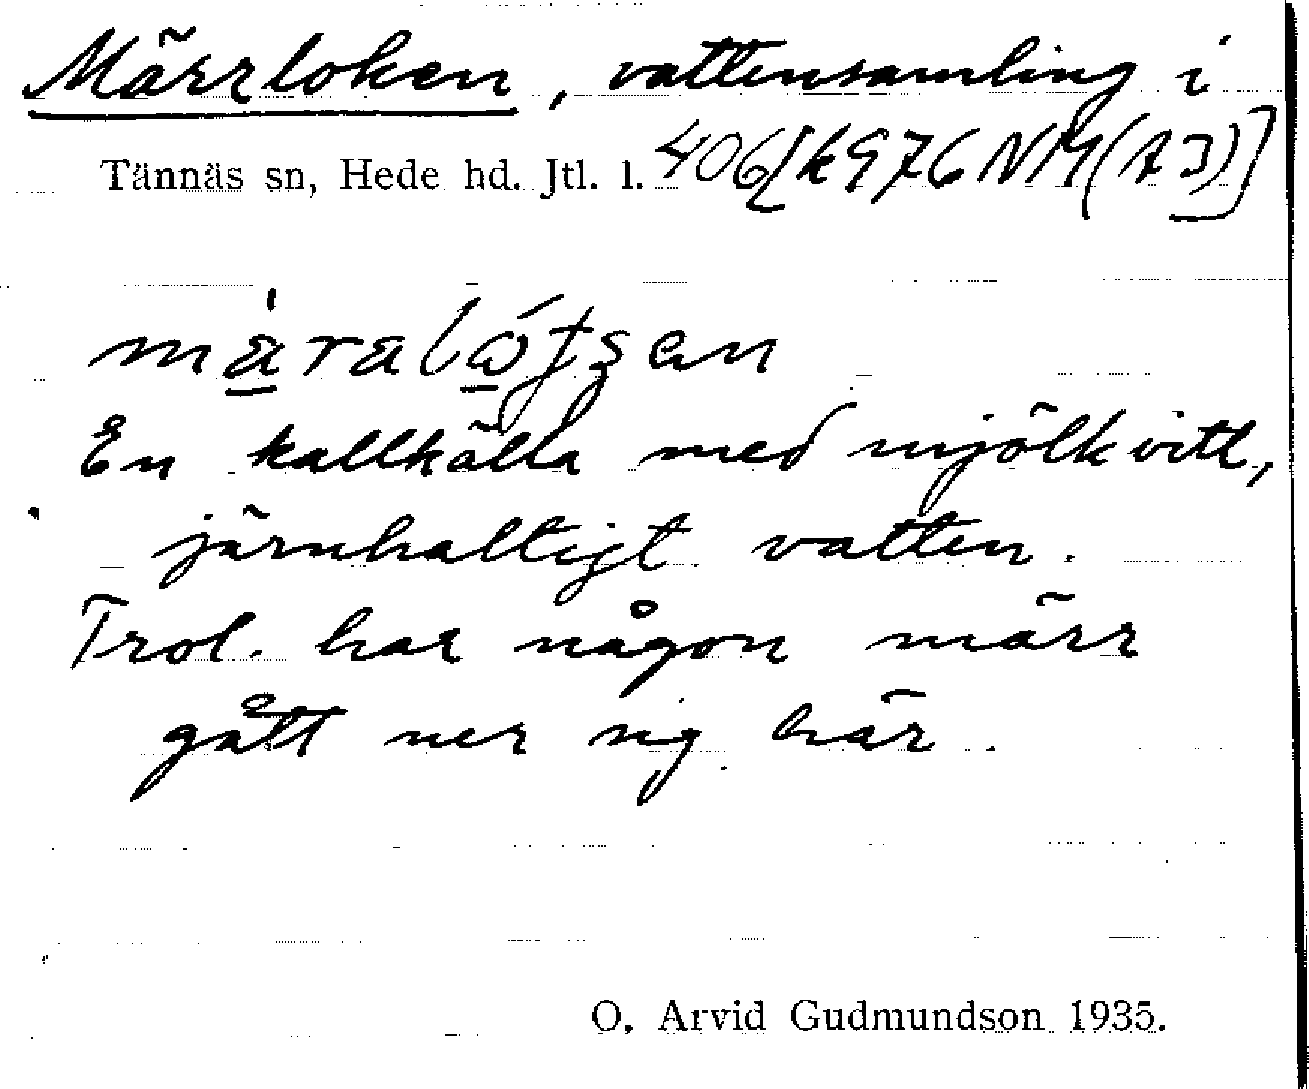 Märrloken, vattensamling i
Tännäs sn, Hede hd. Jtl. l. 406[k976NM(AJ)]
En kallkälla med mjölkvitt,
järnhaltigt vatten.
Trol. har någon märr
gått ner sig här.
O. Arvid Gudmundson 1935.